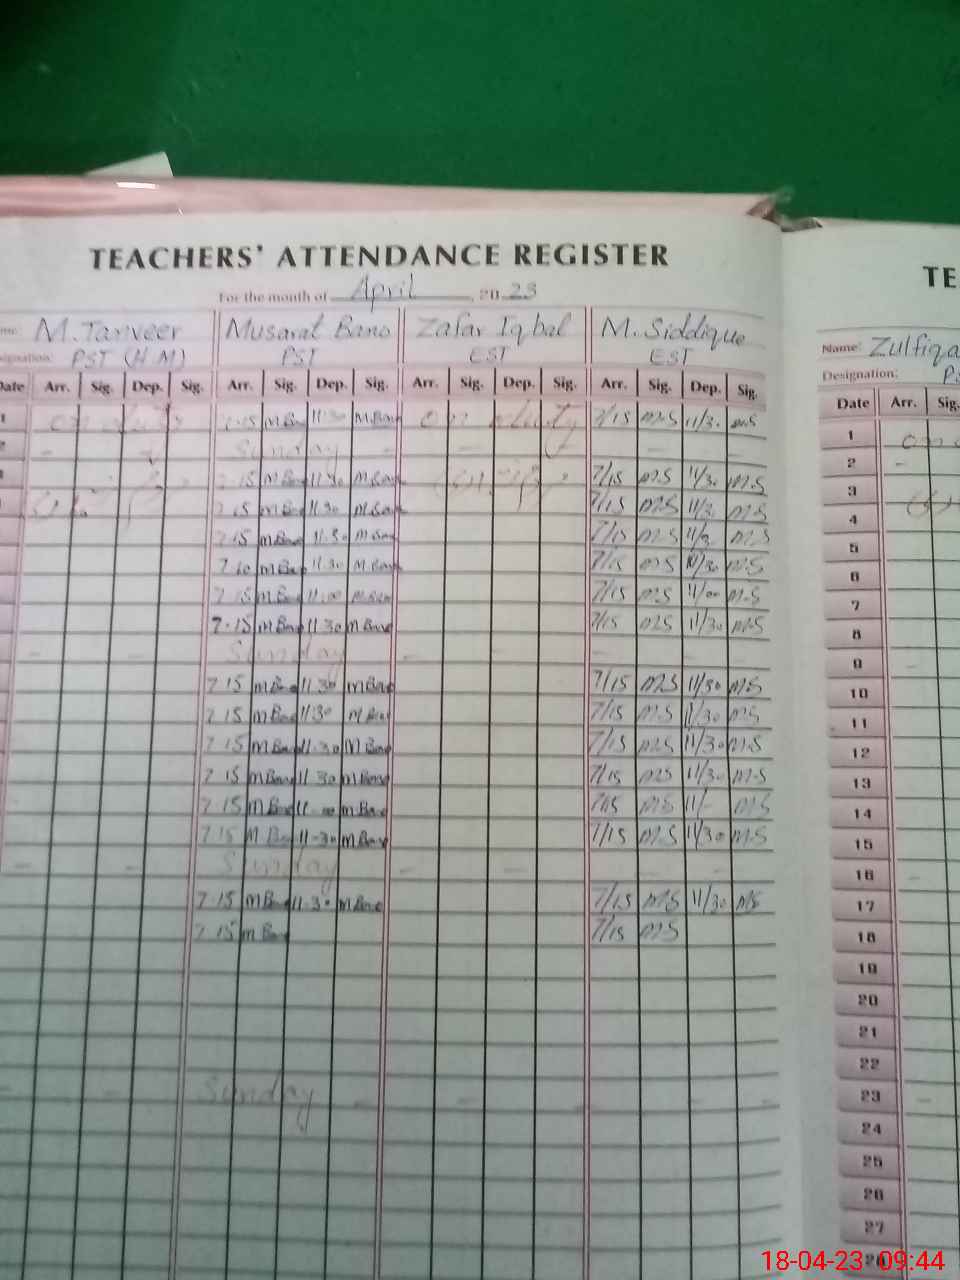 TEACHERS' ATTENDANCE REGISTER
TE
For the month of April, 20 23
M. Tanveer Musarat Bano Zafar Iqbal M. Siddique
Name: Zulfiqa
PST (H.M) PST EST EST
Designation: PS
Date Arr. Sig. Dep. Sig. Arr. Sig. Dep. Sig. Arr. Sig. Dep. Sig. Arr. Sig. Dep. Sig.
Date Arr. Sig.
1 on duty 7.15 M Bano 11.30 M Bano on duty 7/15 M.S 11/30 M.S 1 on
2 - Sunday - - - 2 -
7.15 M Bano 11.30 M Bano 7/15 M.S 11/30 M.S 3
7.15 M Bano 11.30 M Bano 7/15 M.S 11/30 M.S 4
7.15 M Bano 11.30 M Bano 7/15 M.S 11/30 M.S 5
M Bano 11.30 M Bano 7/15 M.S 11/30 M.S 6
7.15 M Bano 11.00 M Bano 7/15 M.S 11/00 M.S 7
7.15 M Bano 11.30 M Bano 7/15 M.S 11/30 M.S 8
- - Sunday - - - - 9 -
7.15 M Bano 11.30 M Bano 7/15 M.S 11/30 M.S 10
7.15 M Bano 11.30 M Bano 7/15 M.S 11/30 M.S 11
7.15 M Bano 11.30 M Bano 7/15 M.S 11/30 M.S 12
7.15 M Bano 11.30 M Bano 7/15 M.S 11/30 M.S 13
7.15 M Bano 11.00 M Bano 7/15 M.S 11/- M.S 14
7.15 M Bano 11-30 M Bano 7/15 M.S 11/30 M.S 15
- - Sunday - - - - 16 -
7.15 M Bano 11.30 M Bano 7/15 M.S 11/30 M.S 17
7.15 M Bano 7/15 M.S 18
19
20
21
22
- - Sunday - - - - - 23 -
24
25
26
27
28
18-04-23 09:44